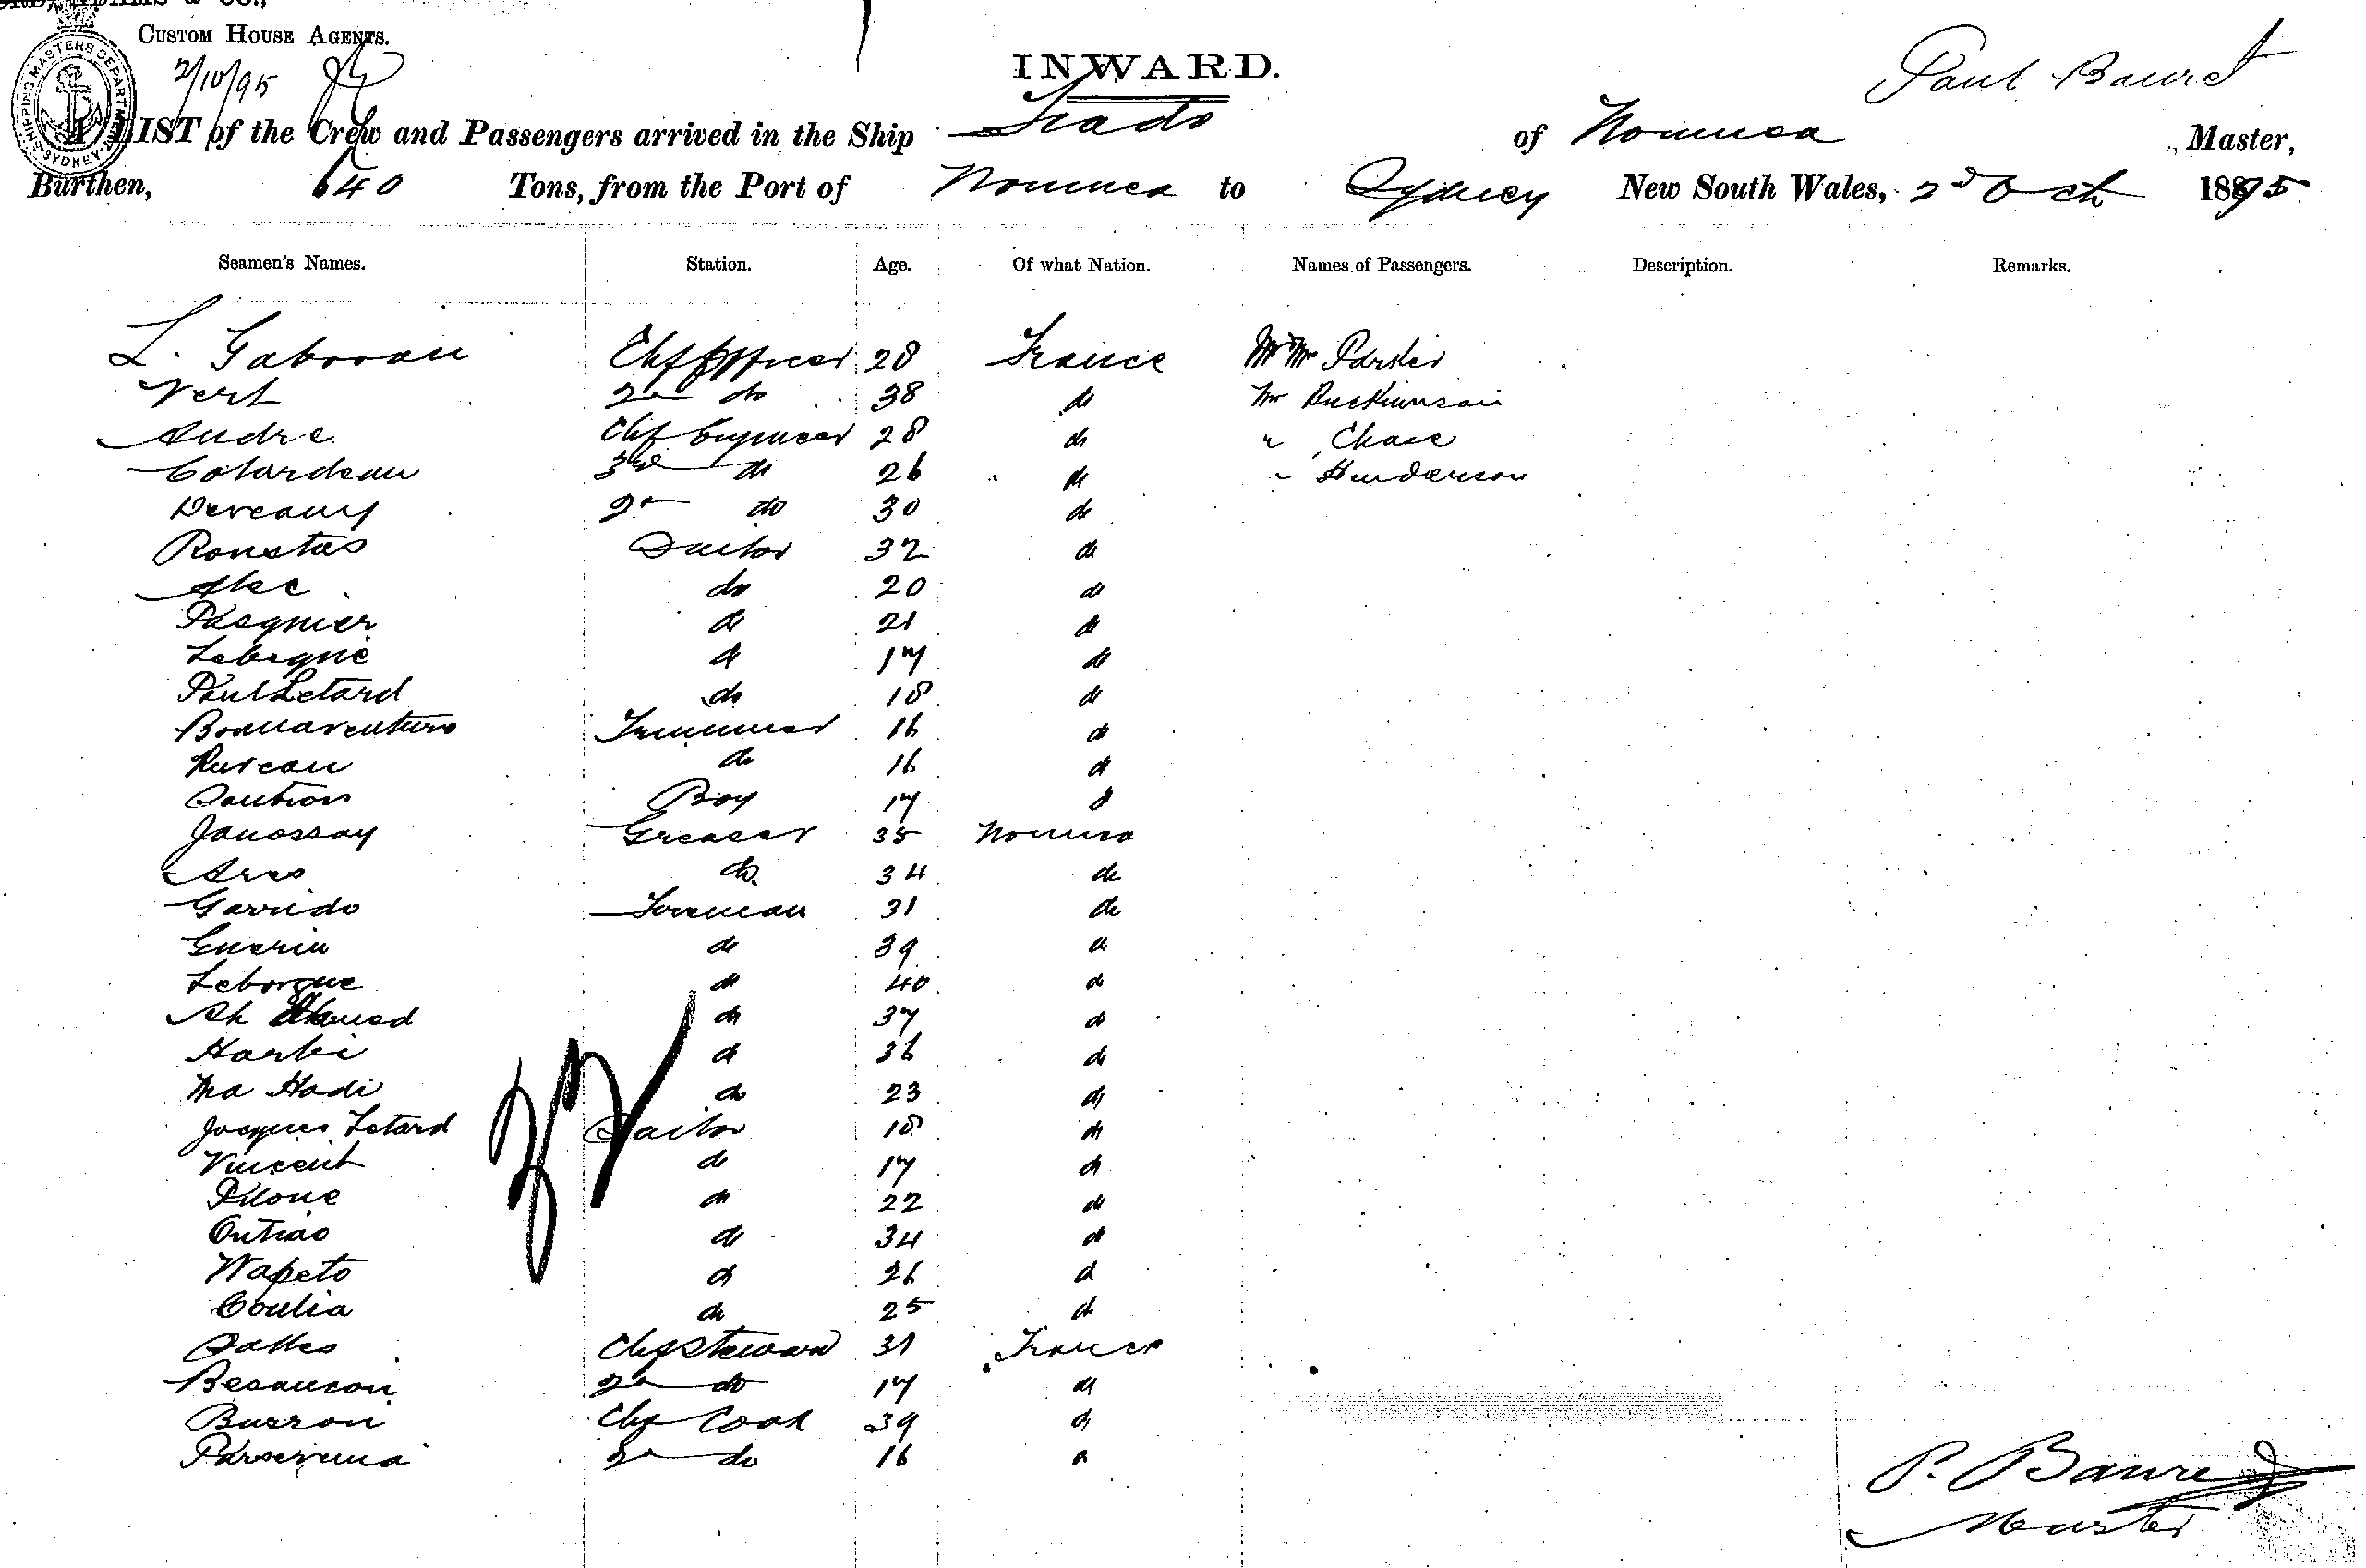 & CO.,
CUSTOM HOUSE AGENTS.
2/10/95
SHIPPING MASTERS DEPARTMENT SYDNEY
INWARD.
Paul Bauret
A LIST of the Crew and Passengers arrived in the Ship of Noumea Master,
Burthen, 640 Tons, from the Port of Noumea to Sydney New South Wales, 2d Oct 1895
Seamen's Names. Station. Age. Of what Nation. Names of Passengers. Description. Remarks.
L. Gaboran Chf Officer 28 France Mr Mr Parker
Vert 2nd do 38 do Mr
Andre Chf Engineer 28 do " Chase
Colardeau 3rd do 26 do " Henderson
Dereany 2nd do 30 do
Ronstas Sailor 32 do
Alec do 20 do
Pasquier do 21 do
Lebegue do 17 do
Paul Letard do 18 do
Bonnaventure Trimmer 16 do
Rureau do 16 do
Sautron Boy 17 do
Janossay Greaser 35 Noumea
Ares do 34 do
Garrido Foreman 31 do
Guerin do 39 do
Leborgue do 40 do
Ah do 37 do
Harbi do 36 do
Ma Hadi do 23 do
Jacques Letard Sailor 18 do
Vincent do 17 do
Pilone do 22 do
Outrao do 34 do
Wapeto do 26 do
Coulia do 25 do
Salles Chf Steward 31 France
Besancon 2nd do 17 do
Burron Chf Cook 39 do
2nd do 16 do
P. Bauret
Master